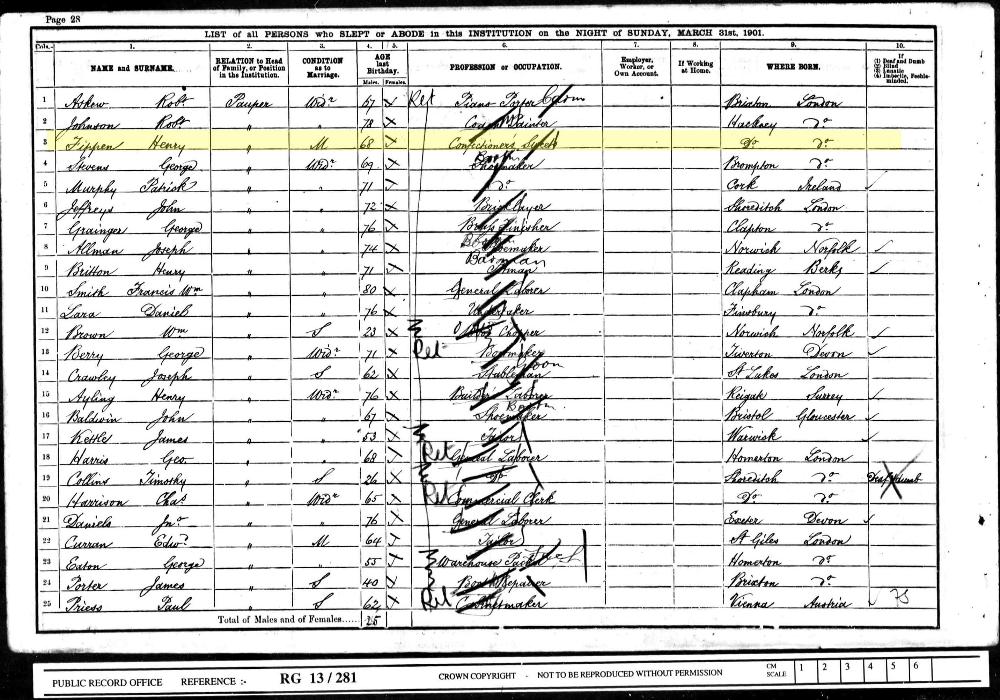 Page 28
LIST of all PERSONS who SLEPT or ABODE in this INSTITUTION on the NIGHT of SUNDAY, MARCH 31st, 1901.
Cols.- 1. 2. 3. 4. 5. 6. 7. 8. 9. 10.
NAME and SURNAME. RELATION to Head of Family, or Position in the Institution. CONDITION as to Marriage. AGE last Birthday. Males. Females. PROFESSION or OCCUPATION. Employer, Worker, or Own Account. If Working at Home. WHERE BORN. If (1) Deaf and Dumb (2) Blind (3) Lunatic (4) Imbecile, Feeble-minded.
1 Askew Robt Pauper Widr 67 Ret Piano Porter Brixton London
2 Johnson Robt " " 78 Painter Hackney Do
3 Tippen Henry " M 68 Confectioners Do Do
4 Stevens George " Widr 69 Shoemaker Brompton Do
5 Murphy Patrick " " 71 Do Cork Ireland
6 Jeffreys John " " 72 Bricklayer Shoreditch London
7 Grainger George " " 76 Brass Finisher Clapton Do
8 Allman Joseph " " 74 Shoemaker Norwich Norfolk
9 Britton Henry " " 71 Barman Reading Berks
10 Smith Francis Wm " " 80 General Laborer Clapham London
11 Lara Daniel " " 76 Undertaker Finsbury Do
12 Brown Wm " S 23 Chopper Norwich Norfolk
13 Berry George " Widr 71 Ret Tiverton Devon
14 Crawley Joseph " S 62 Stableman St Lukes London
15 Ayling Henry " Widr 76 Builders Laborer Reigate Surrey
16 Baldwin John " " 67 Shoemaker Bristol Gloucester
17 Kettle James " " 53 Tailor Warwick
18 Harris Geo. " " 68 Ret General Laborer Homerton London
19 Collins Timothy " S 26 Do Shoreditch Do Deaf & dumb
20 Harrison Chas " Widr 65 Ret Commercial Clerk Do Do
21 Daniels Jno " " 76 General Laborer Exeter Devon
22 Curran Edwd " M 64 Tailor St Giles London
23 Eaton George " " 55 Warehouse Homerton Do
24 Porter James " S 40 Boot Repairer Brixton Do
25 Priess Paul " S 62 Ret Cabinetmaker Vienna Austria
Total of Males and of Females...... 25
PUBLIC RECORD OFFICE REFERENCE :- RG 13/281 CROWN COPYRIGHT - NOT TO BE REPRODUCED WITHOUT PERMISSION CM SCALE 1 2 3 4 5 6